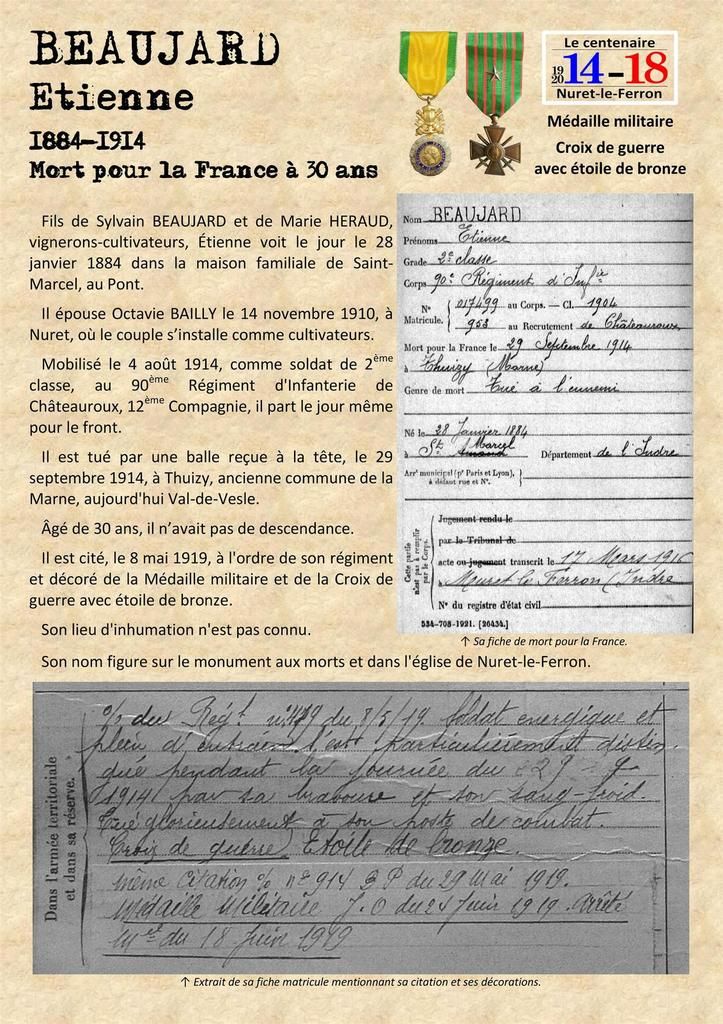 BEAUJARD
Etienne
1884-1914
Mort pour la France à 30 ans
Le centenaire
19 20 14-18
Nuret-le-Ferron
Médaille militaire
Croix de guerre
avec étoile de bronze
Fils de Sylvain BEAUJARD et de Marie HERAUD,
vignerons-cultivateurs, Étienne voit le jour le 28
janvier 1884 dans la maison familiale de Saint-
Marcel, au Pont.
Il épouse Octavie BAILLY le 14 novembre 1910, à
Nuret, où le couple s'installe comme cultivateurs.
Mobilisé le 4 août 1914, comme soldat de 2ème
classe, au 90ème Régiment d'Infanterie de
Châteauroux, 12ème Compagnie, il part le jour même
pour le front.
Il est tué par une balle reçue à la tête, le 29
septembre 1914, à Thuizy, ancienne commune de la
Marne, aujourd'hui Val-de-Vesle.
Âgé de 30 ans, il n'avait pas de descendance.
Il est cité, le 8 mai 1919, à l'ordre de son régiment
et décoré de la Médaille militaire et de la Croix de
guerre avec étoile de bronze.
Son lieu d'inhumation n'est pas connu.
Son nom figure sur le monument aux morts et dans l'église de Nuret-le-Ferron.
Nom BEAUJARD
Prénoms Etienne
Grade 2e classe
Corps 90e Régiment d'Infie
N° Matricule. 017499 au Corps. — Cl. 1904
953 au Recrutement de Châteauroux
Mort pour la France le 29 Septembre 1914
à Thuizy (Marne)
Genre de mort Tué à l'ennemi
Né le 28 Janvier 1884
à St Marcel Département de l'Indre
Arrt municipal (pr Paris et Lyon),
à défaut rue et N°.
Cette partie
n'est pas à remplir
par le Corps.
Jugement rendu le
par le Tribunal de
acte ou jugement transcrit le 17 Mars 1916
à Neuret le Ferron (Indre
N° du registre d'état civil
534-708-1921. [26434.]
↑ Sa fiche de mort pour la France.
Dans l'armée territoriale
et dans sa réserve.
% du Régt n° 449 du 8/5/19. Soldat energique et
plein d'entrain s'est particulièrement distin-
gué pendant la journée du 29-9
1914 par sa bravoure et son sang-froid.
Tué glorieusement à son poste de combat.
Croix de guerre Etoile de bronze.
même citation % n° 914 DP du 29 Mai 1919.
Médaille Militaire J.O du 24 Juin 1919. Arrêté
mel du 18 Juin 1919
↑ Extrait de sa fiche matricule mentionnant sa citation et ses décorations.